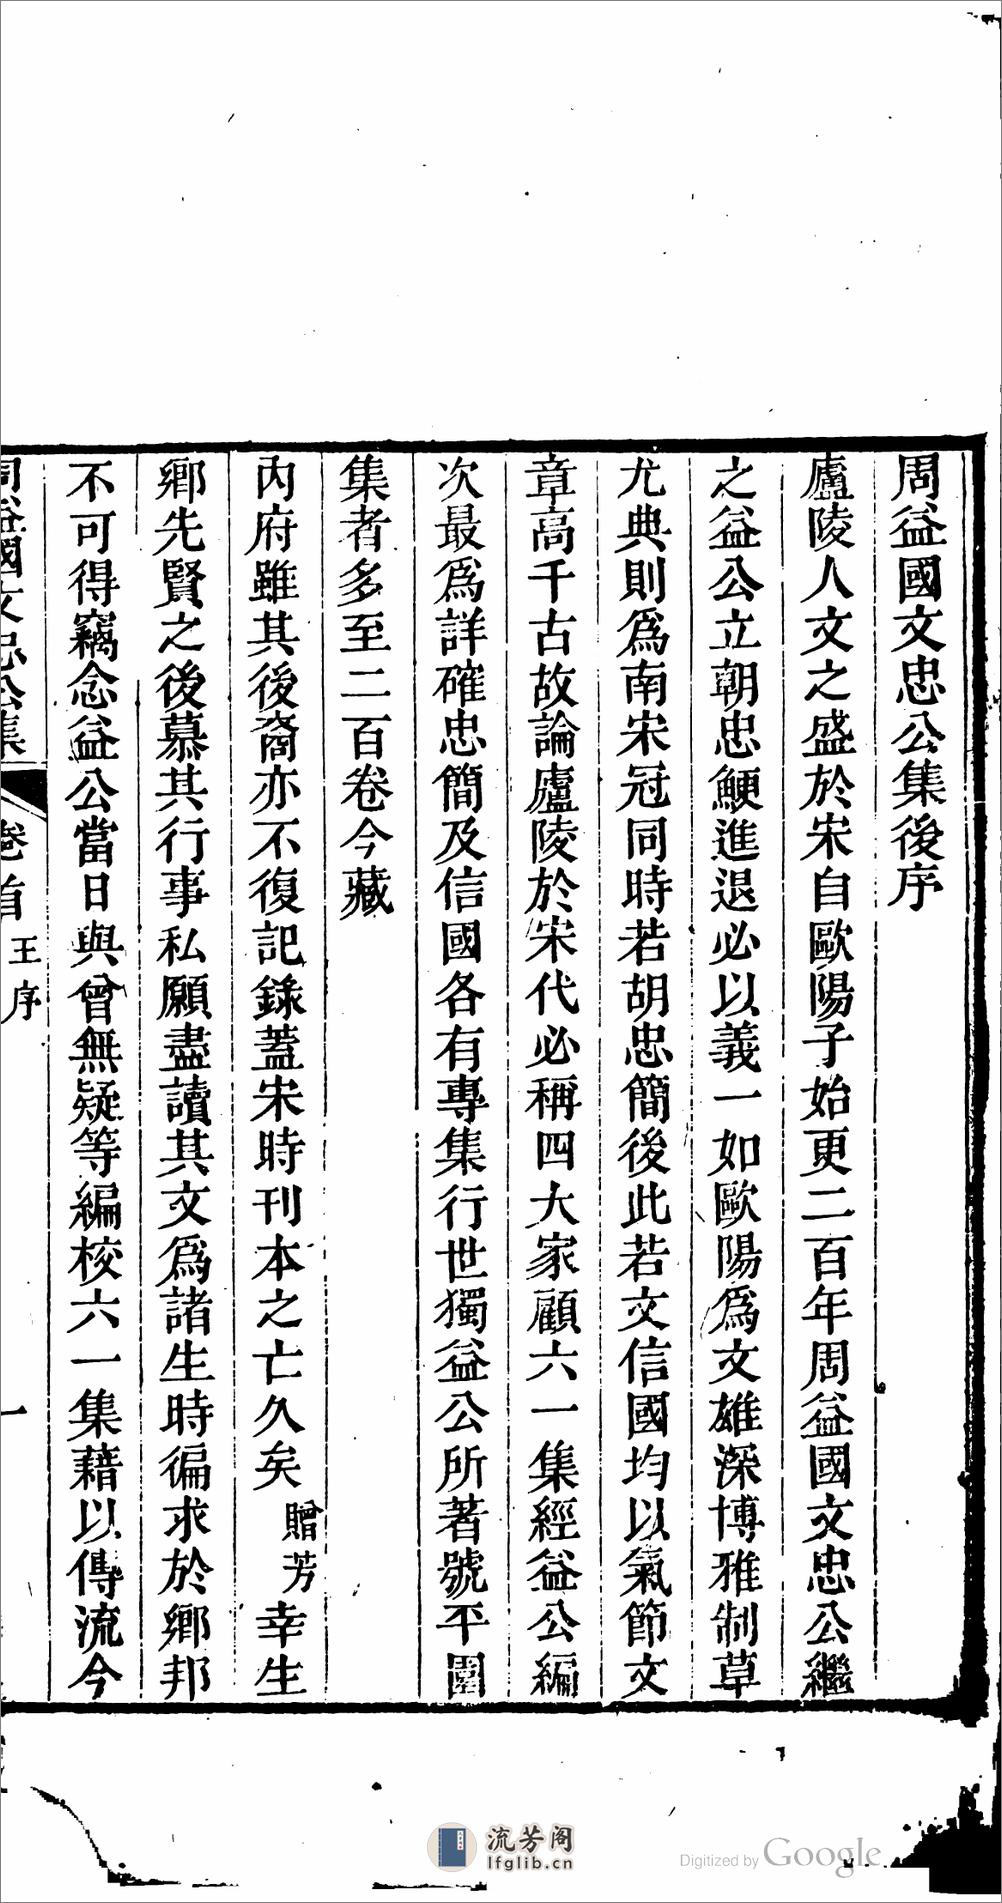 周益國文忠公集後序
廬陵人文之盛於宋自歐陽子始更二百年周益國文忠公繼
之益公立朝忠鯁進退必以義一如歐陽爲文雄深博雅制草
尤典則爲南宋冠同時若胡忠簡後此若文信國均以氣節文
章高千古故論廬陵於宋代必稱四大家顧六一集經益公編
次最爲詳確忠簡及信國各有專集行世獨益公所著號平園
集者多至二百卷今藏
內府雖其後裔亦不復記錄蓋宋時刊本之亡久矣贈芳幸生
鄉先賢之後慕其行事私願盡讀其文爲諸生時徧求於鄉邦
不可得竊念益公當日與曾無疑等編校六一集藉以傳流今
周益國文忠公集
卷首
王序
一
流芳阁
lfglib.cn
Digitized by Google